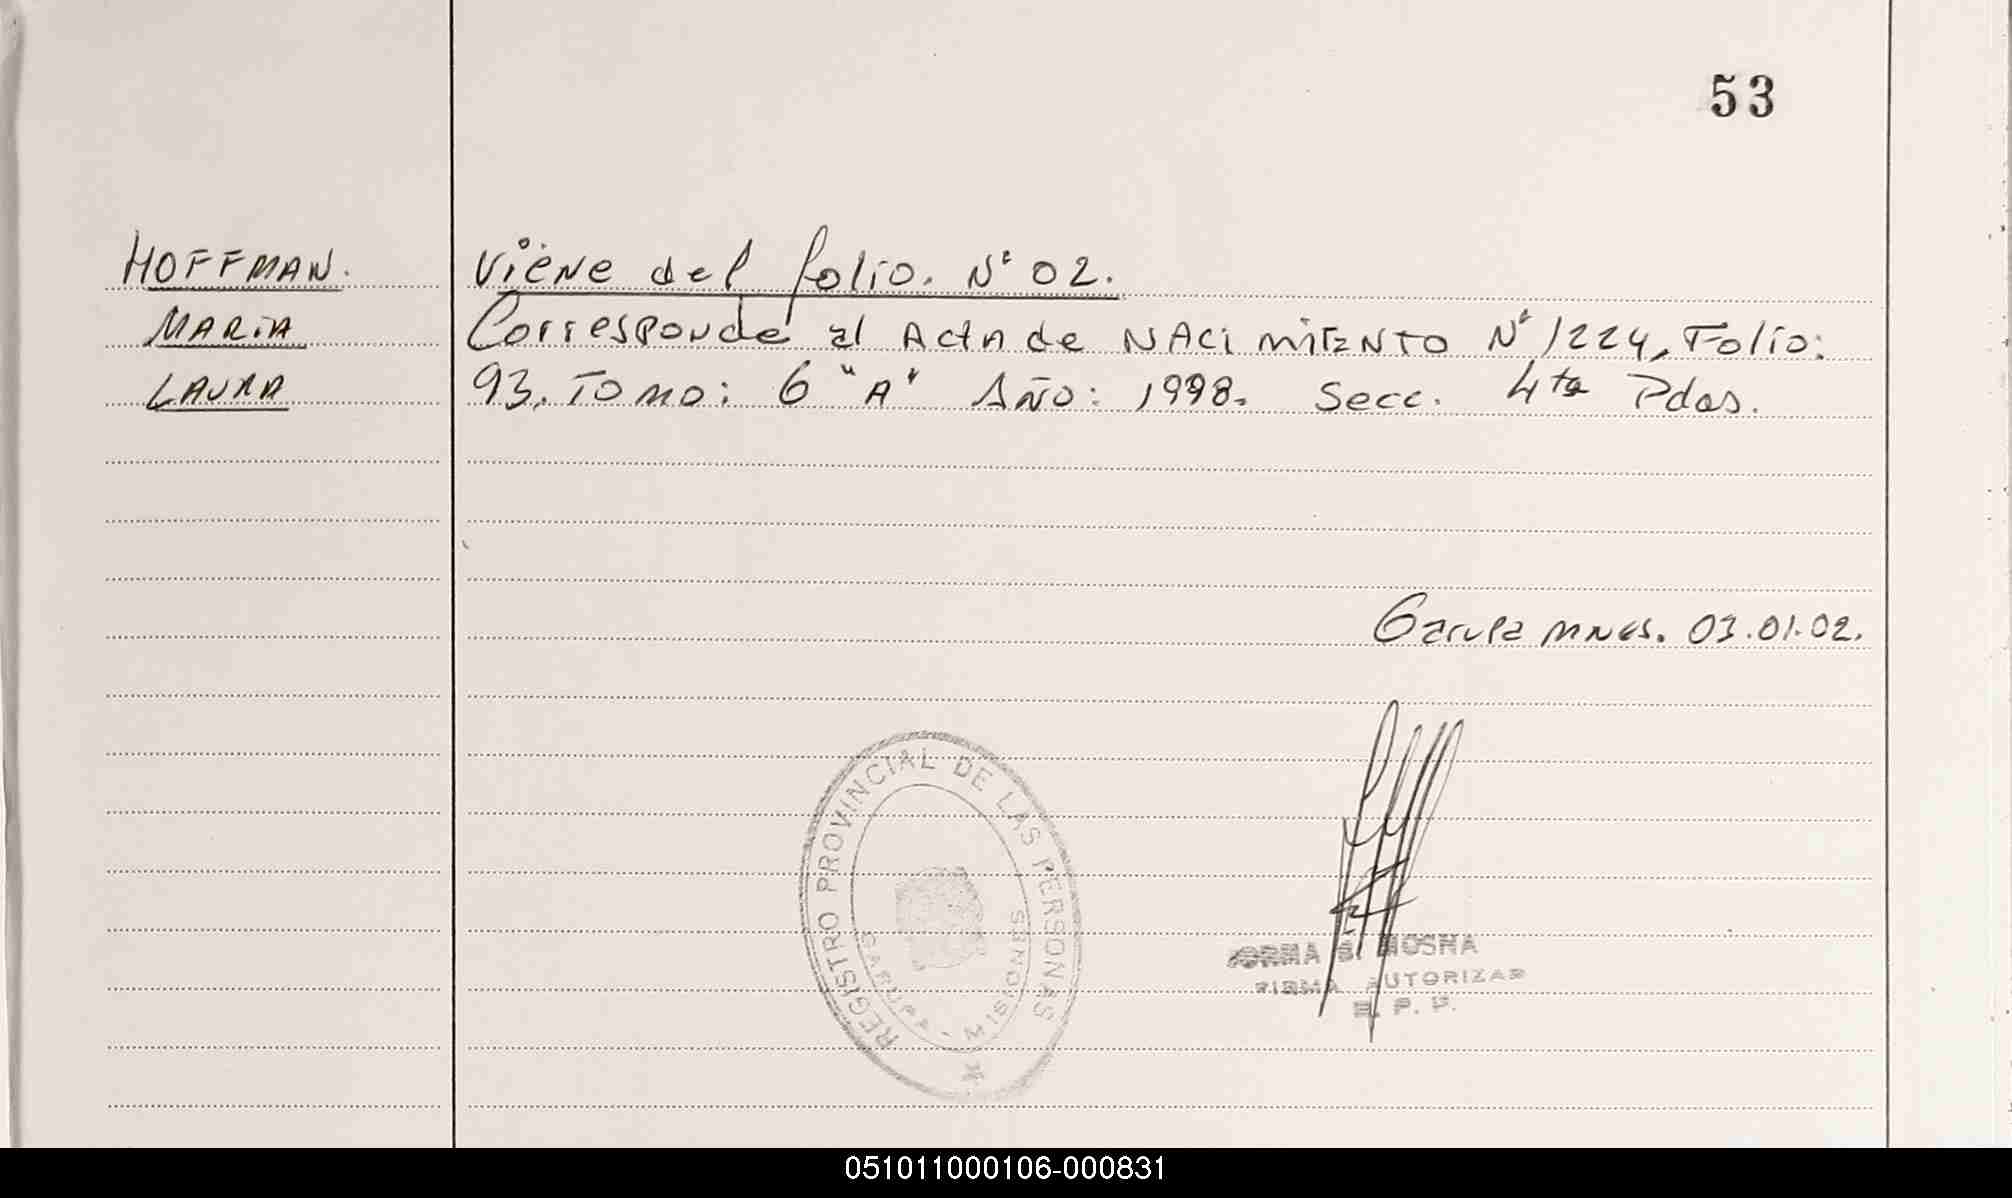 53
HOFFMAN. Viene del folio. Nº 02.
MARIA Corresponde al Acta de NACimiENTO Nº 1224, Folio:
LAURA 93. TOMO: 6 "A" AÑO: 1998. Secc. 4ta Pdas.
Garupa mnes. 03.01.02.
REGISTRO PROVINCIAL DE LAS PERSONAS
GARUPA - MISIONES
FIRMA AUTORIZAD
R. P. P.
051011000106-000831